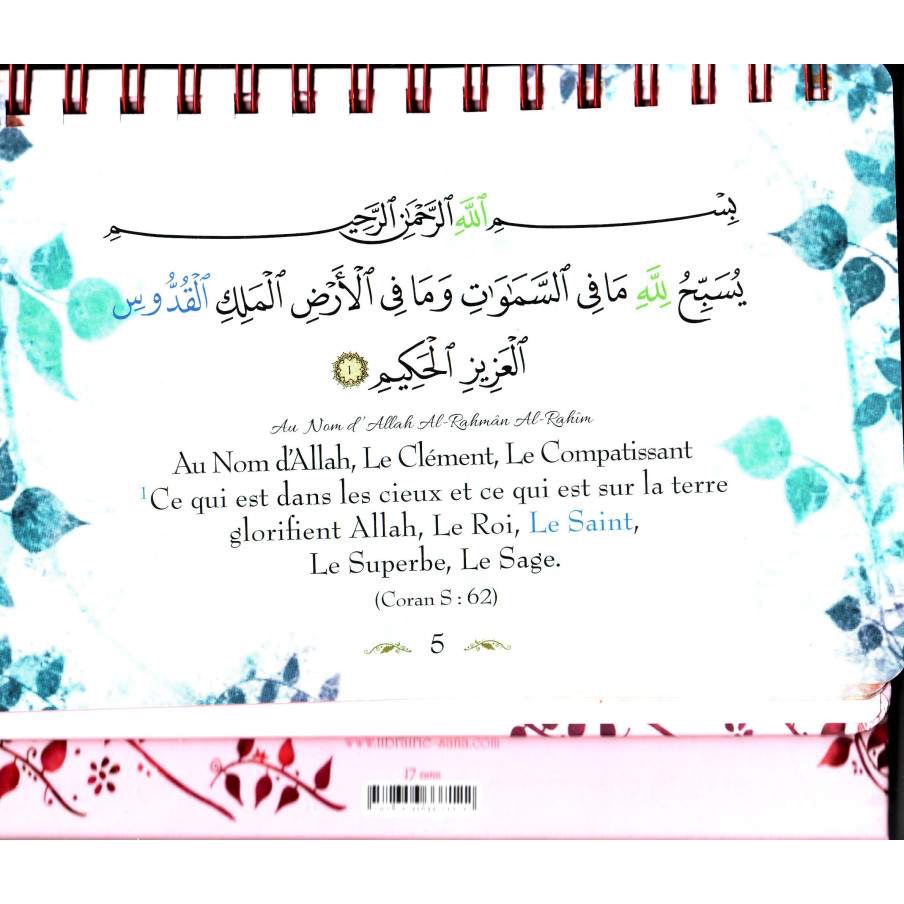 بِسْمِ ٱللَّهِ ٱلرَّحْمَٰنِ ٱلرَّحِيمِ
يُسَبِّحُ لِلَّهِ مَا فِى ٱلسَّمَٰوَٰتِ وَمَا فِى ٱلْأَرْضِ ٱلْمَلِكِ ٱلْقُدُّوسِ
ٱلْعَزِيزِ ٱلْحَكِيمِ ١
Au Nom d'Allah Al-Rahmân Al-Rahîm
Au Nom d'Allah, Le Clément, Le Compatissant
¹Ce qui est dans les cieux et ce qui est sur la terre
glorifient Allah, Le Roi, Le Saint,
Le Superbe, Le Sage.
(Coran S : 62)
5
www.librairie-sana.com